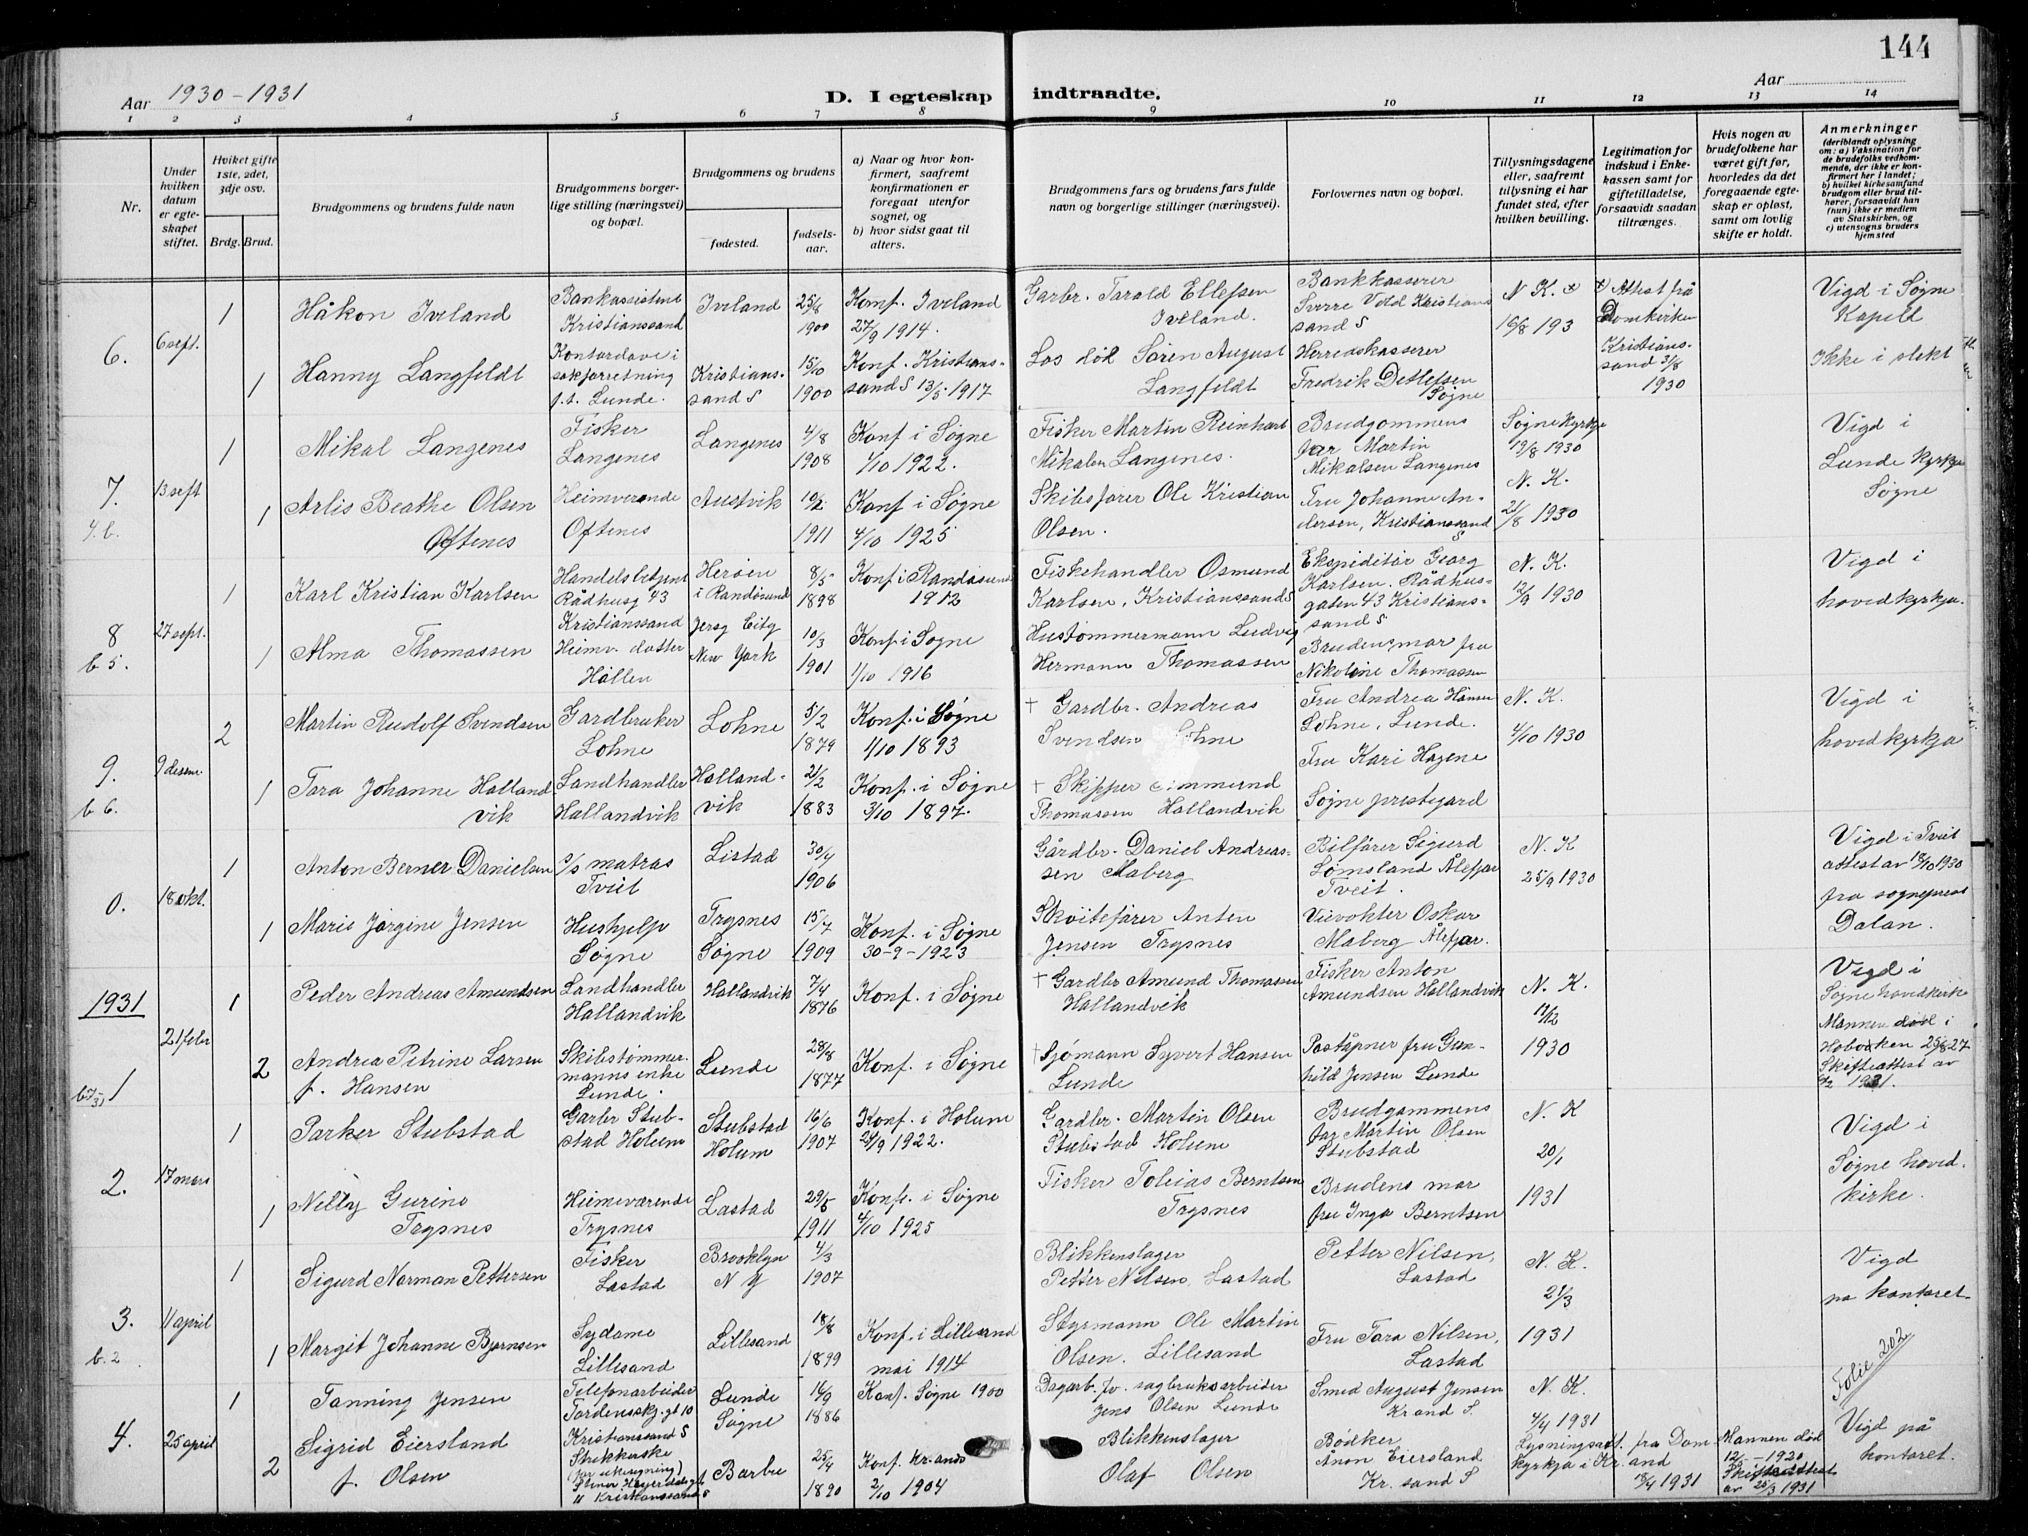 144
Aar 1930-1931
D. I egteskap indtraadte.
Aar
1 2 3 4 5 6 7 8 9 10 11 12 13 14
Nr.
Under hvilken datum er egteskapet stiftet.
Hviket gifte 1ste, 2det, 3dje osv.
Brdg. Brud.
Brudgommens og brudens fulde navn
Brudgommens borgerlige stilling (næringsvei) og bopæl.
Brudgommens og brudens
fødested.
fødselsaar.
a) Naar og hvor konfirmert, saafremt konfirmationen er foregaat utenfor sognet, og
b) hvor sidst gaat til alters.
Brudgommens fars og brudens fars fulde navn og borgerlige stillinger (næringsvei).
Forlovernes navn og bopæl.
Tillysningsdagene eller, saafremt tillysning ei har fundet sted, efter hvilken bevilling.
Legitimation for indskud i Enkekassen samt for giftetilladelse, forsaavidt saadan tiltrænges.
Hvis nogen av brudefolkene har været gift før, hvorledes da det foregaaende egteskap er opløst, samt om lovlig skifte er holdt.
Anmerkninger (deriblandt oplysning om: a) Vaksination for de brudefolks vedkommende, der ikke er konfirmert her i landet; b) hvilket kirkesamfund brudgom eller brud tilhører, forsaavidt han (hun) ikke er medlem av Statskirken, og c) utensogns bruders hjemsted
6. 6 sept.
1 Håkon Iveland Bankassistent Kristianssand Iveland 25/8 1900 Konf. Iveland 27/9 1914. Garbr. Tarald Ellefsen Iveland. Bankkasserer Sverre Vold Kristianssand S N. K. x 16/8 193 x Attest frå Domkirken Kristianssand 3/8 1930 Vigd i Søgne Kapell
1 Hanny Langfeldt Kontordave i sakforretning f.t. Lunde. Kristianssand S 15/10 1900 Konf. Kristianssand S 13/5 1917 Los død Søren August Langfeldt Herredskasserer Fredrik Detlefsen Søgne Ikke i slekt
7. 4. b. 13 sept
1 Mikal Langenes Fisker Langenes Langenes 4/8 1908 Konf i Søgne 1/10 1922. Fisker Martin Reinhart Mikalsen Langenes. Brudgommens far Martin Mikalsen Langenes Søgne Kyrkje 19/8 1930 Vigd i Lunde Kyrkje Søgne
1 Arlis Beathe Olsen Oftenes Heimverande Oftenes Austvik 10/2 1911 Konf i Søgne 4/10 1925 Skibsfører Ole Kristian Olsen. Fru Johanne Andersen, Kristianssand S N. K. 21/8 1930
8 b 5. 27 sept.
1 Karl Kristian Karlsen Handelsbetjent Rådhusg 43 Kristianssand Herøen i Randøsund 8/5 1898 Konf i Randøsund 1912 Fiskehandler Osmund Karlsen, Kristianssand S Ekspeditør Georg Karlsen. Rådhusgaten 43 Kristianssand S N. K. 12/9 1930 Vigd i hovedkyrkja.
1 Alma Thomassen Heimv. datter Høllen Jersy City New York 10/3 1901 Konf. i Søgne 1/10 1916 Hustømmermann Ludvig Hermann Thomassen Brudens mor fru Nikoline Thomassen
9. b 6. 9 desem.
2 Martin Rudolf Svendsen Gardbruker Lohne Lohne 5/2 1879 Konf. i Søgne 1/10 1893 † Gardbr. Andreas Svendsen Lohne Fru Andrea Hansen Lohne, Lunde. N. K. 4/10 1930 Vigd i hovedkyrkja
1 Tora Johanne Hallandvik Landhandler Hallandvik Hallandvik 21/2 1883 Konf. i Søgne 3/10 1897. † Skipper Thomassen Hallandvik Fru Kari Hagene Søgne prestegard
0. 18 okt.
1 Anton Berner Danielsen s/s matros Tveit Listad 30/4 1906 Gårdbr. Daniel Andreassen Moberg Bilfører Sigurd Lømsland Ålefjær Tveit. N. K 25/9 1930 Vigd i Tveit attest av 18/10 1930 fra sogneprest Dalan.
1 Maris Jørgine Jensen Hushjelp Søgne Trysnes Søgne 15/7 1909 Konf. i Søgne 30-9-1923 Skøitefører Anten Jensen Trysnes Veivokter Oskar Moberg Ålefjær.
1931
b7/31 1 21 febr
1 Peder Andreas Amundsen Landhandler Hallandvik Hallandvik 7/4 1876 Konf. i Søgne † Gardbr Amund Thomassen Hallandvik Fisker Anton Amundsen Hallandvik N. K. 12/12 1930 Vigd i Søgne hovedkirk Mannen død i Hoboken 25/8 27 Skifteattest av 1931.
2 Andrea Petrine Larsen f. Hansen Skibstømmermanns enke Lunde. Lunde 28/8 1877 Konf. i Søgne † Sjømann Syvert Hansen Lunde Poståpner fru Gunhild Jensen Lunde
2. 17 mars
1 Parker Stubstad Garbr Stubstad Holum Stubstad Holum 16/6 1907 Konf. i Holum 24/9 1922. Gardbr. Martin Olsen Stubstad Holum Brudgommens far Martin Olsen Stubstad N. K 20/1 1931 Vigd i Søgne hovedkirke.
1 Nelly Gurine Trysnes Hiemeværende Trysnes Lastad 29/5 1911 Konf. i Søgne 4/10 1925 Fisker Tobias Berntsen Trysnes Brudens mor fru Inga Berntsen
3. b. 2 11 april
1 Sigurd Norman Pettersen Fisker Lastad Brooklyn N Y 4/3 1907 Blikkenslager Petter Nilsen, Lastad Petter Nilsen, Lastad N. K. 21/3 1931 Vigd på kontoret.
1 Margit Johanne Bjørnsen Sydame Lillesand Lillesand 18/8 1899 Konf. i Lillesand mai 1914 Styrmann Ole Martin Olsen. Lillesand Fru Tora Nilsen, Lastad
Folie 202
4. 25 april
1 Tanning Jensen Telefonarbeider Tordenskj. gt 10 Kristianssand S Lunde Søgne 16/9 1886 Konf. Søgne 1900 Dagarb. fv. sagbruksarbeider Jens Olsen Lunde Smed August Jensen Krsand S. N. K. 4/4 1931 Vigd på kontoret.
2 Sigrid Eiersland f. Olsen Strikkerske (for utsigning) Steiner Heyerdalsgt 11 Kristianssand S Barbu 25/4 1890 Konf. Kr.sand 2/10 1904 Blikkenslager Olaf Olsen Bødker Anon Eiersland Kr. sand S Lysningsatt. fra Domkyrkja i Kr. sand 18/4 1931 Mannen død 12/5-1920 Skifteattest av 25/3 1931